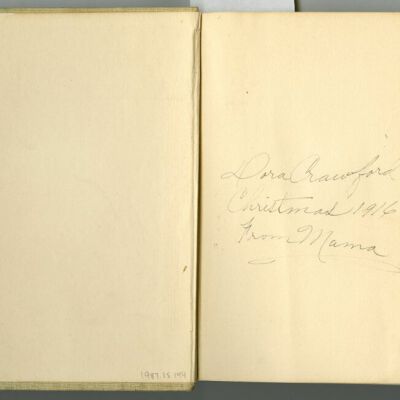 Dora Crawford
Christmas 1916
From Mama
1987.25.144